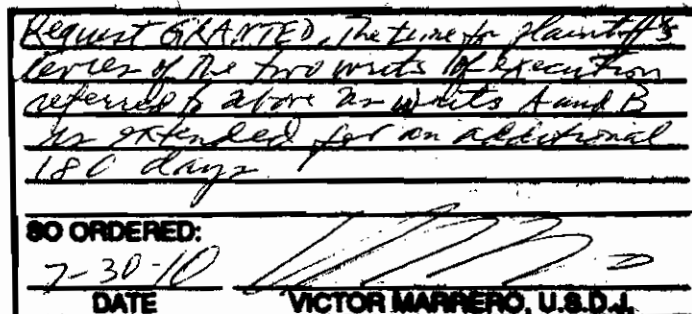 Request GRANTED. The time for plaintiff's
levies of the two writs of execution
referred to above as writs A and B
is extended for an additional
180 days.
SO ORDERED:
7-30-10
DATE VICTOR MARRERO, U.S.D.J.